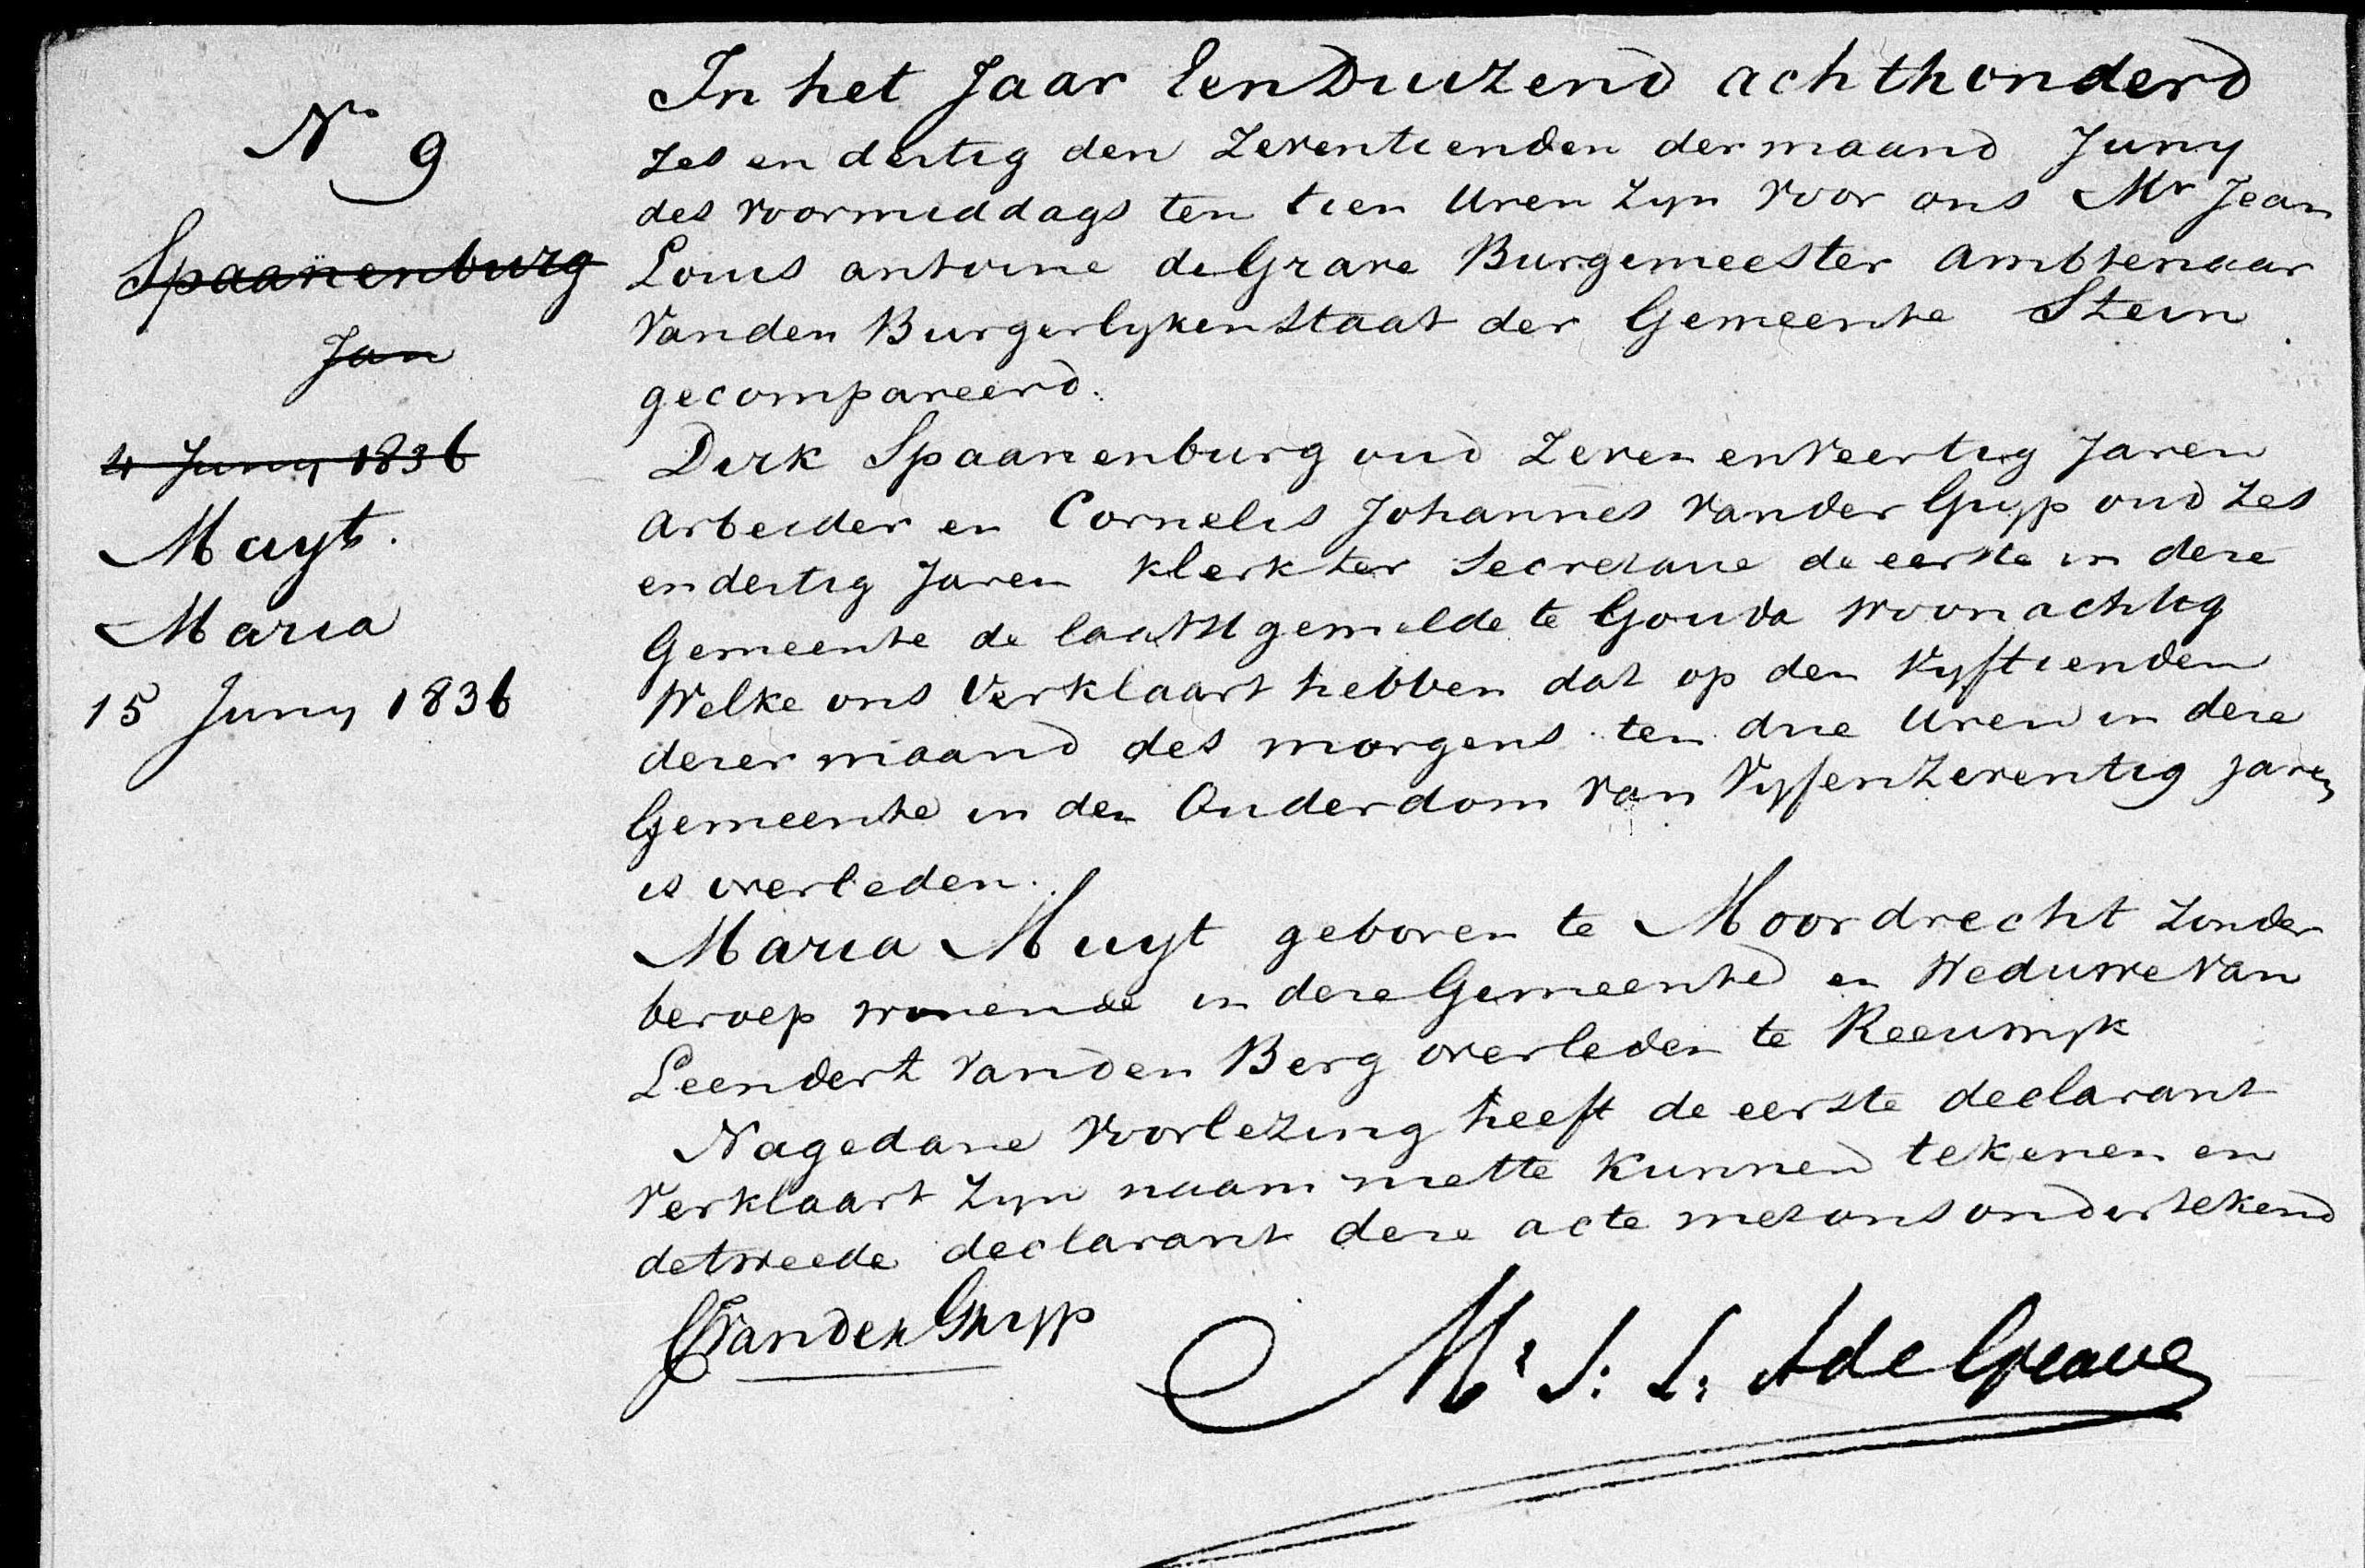 No 9
Spaanenburg
Jan
4 Juny 1836
Muyt.
Maria
15 Juny 1836
In het Jaar EenDuizend achthonderd
zes en dertig den Zeventienden der maand Juny
des voormiddags ten tien Uren Zyn voor ons Mr Jean
Louis antoine de Grave Burgemeester Ambtenaar
van den Burgerlyken Staat der Gemeente Stein
gecompareerd.
Dirk Spaanenburg oud Zeven en veertig Jaren
arbeider en Cornelis Johannes van der Gryp oud zes
en dertig Jaren klerk ter Secretarie de eerste in deze
Gemeente de laatst gemelde te Gouda woonachtig
Welke ons Verklaart hebben dat op den vyftienden
dezer maand des morgens ten drie Uren in deze
Gemeente in den Ouderdom van vyfenzeventig jaren
is overleden.
Maria Muyt geboren te Moordrecht zonder
beroep wonende in deze Gemeente en Weduwe van
Leendert van den Berg overleden te Reeuwyk
Nagedane voorlezing heeft de eerste declarant
verklaart Zyn naam niette kunnen tekenen en
detweede declarant deze acte met ons ondertekend
CJ van der Gryp
Mr J: L: A de Greave